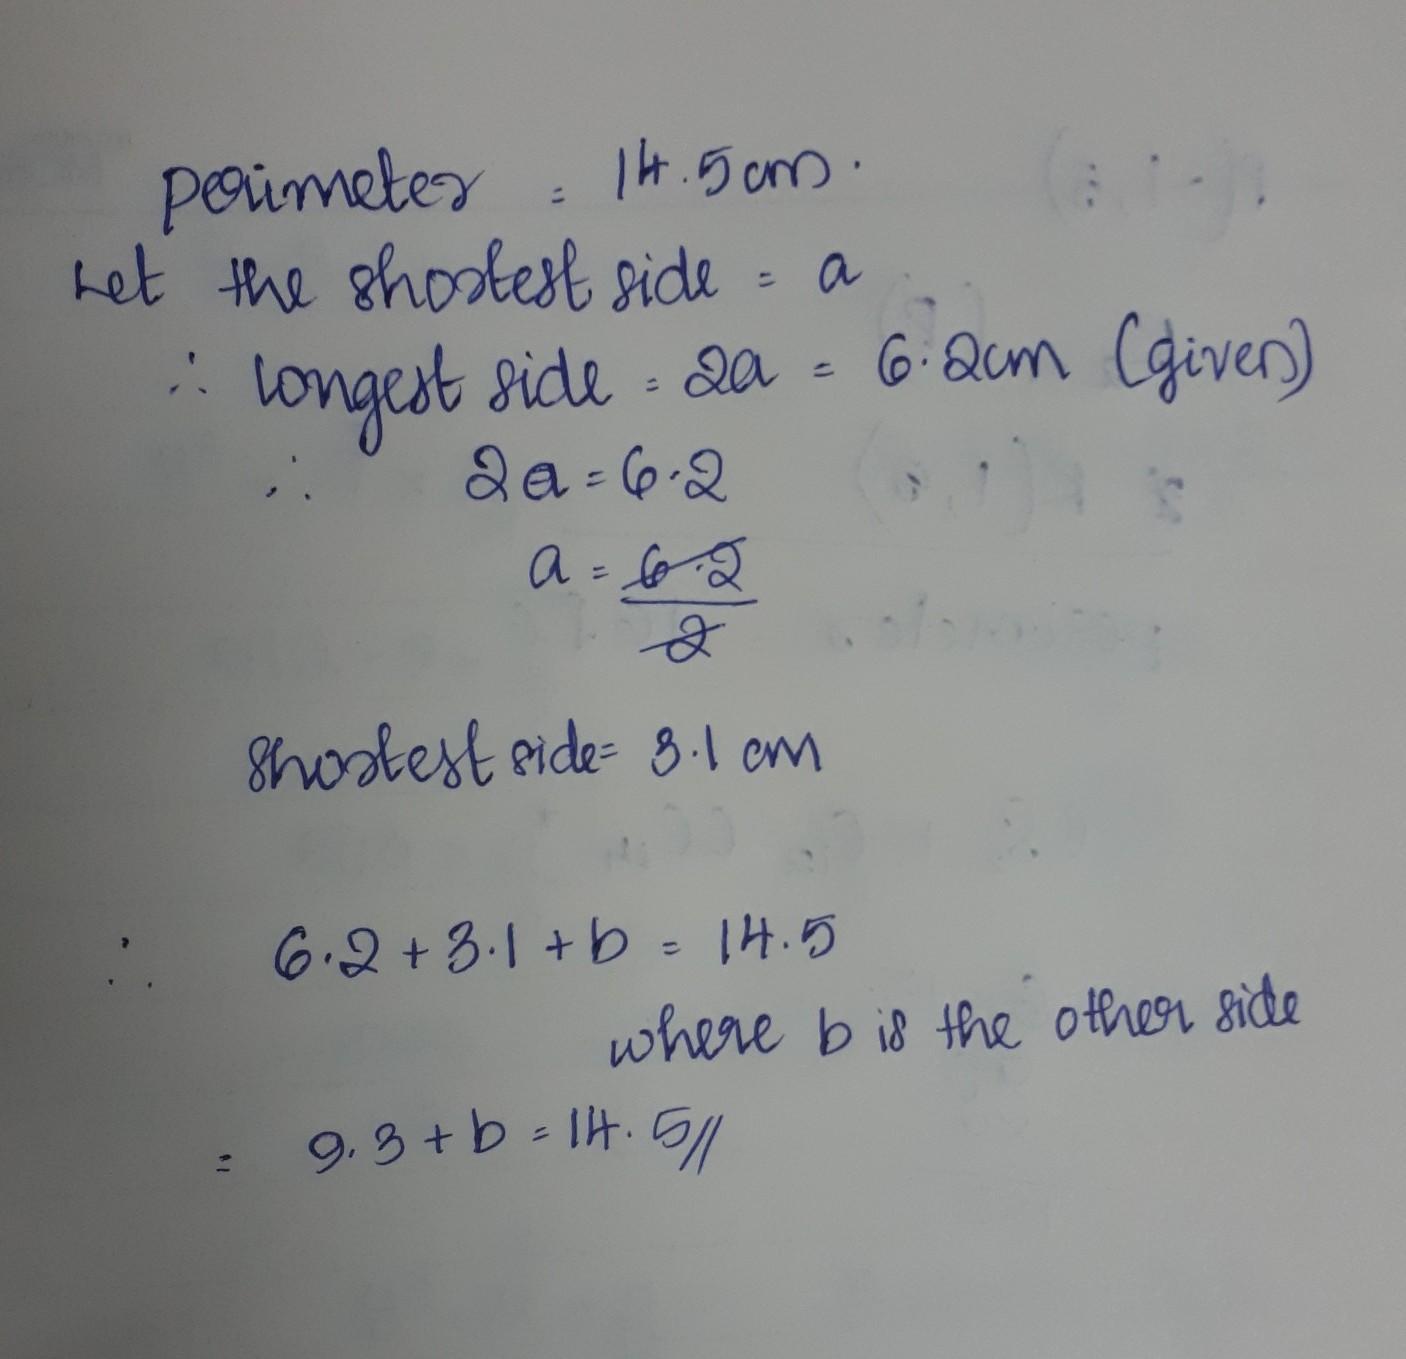 Perimeter = 14.5cm.
Let the shortest side = a
∴ longest side = 2a = 6.2cm (given)
∴ 2a = 6.2
a = 6.2
2
Shortest side = 3.1 cm
∴ 6.2 + 3.1 + b = 14.5
where b is the other side
= 9.3 + b = 14.5//